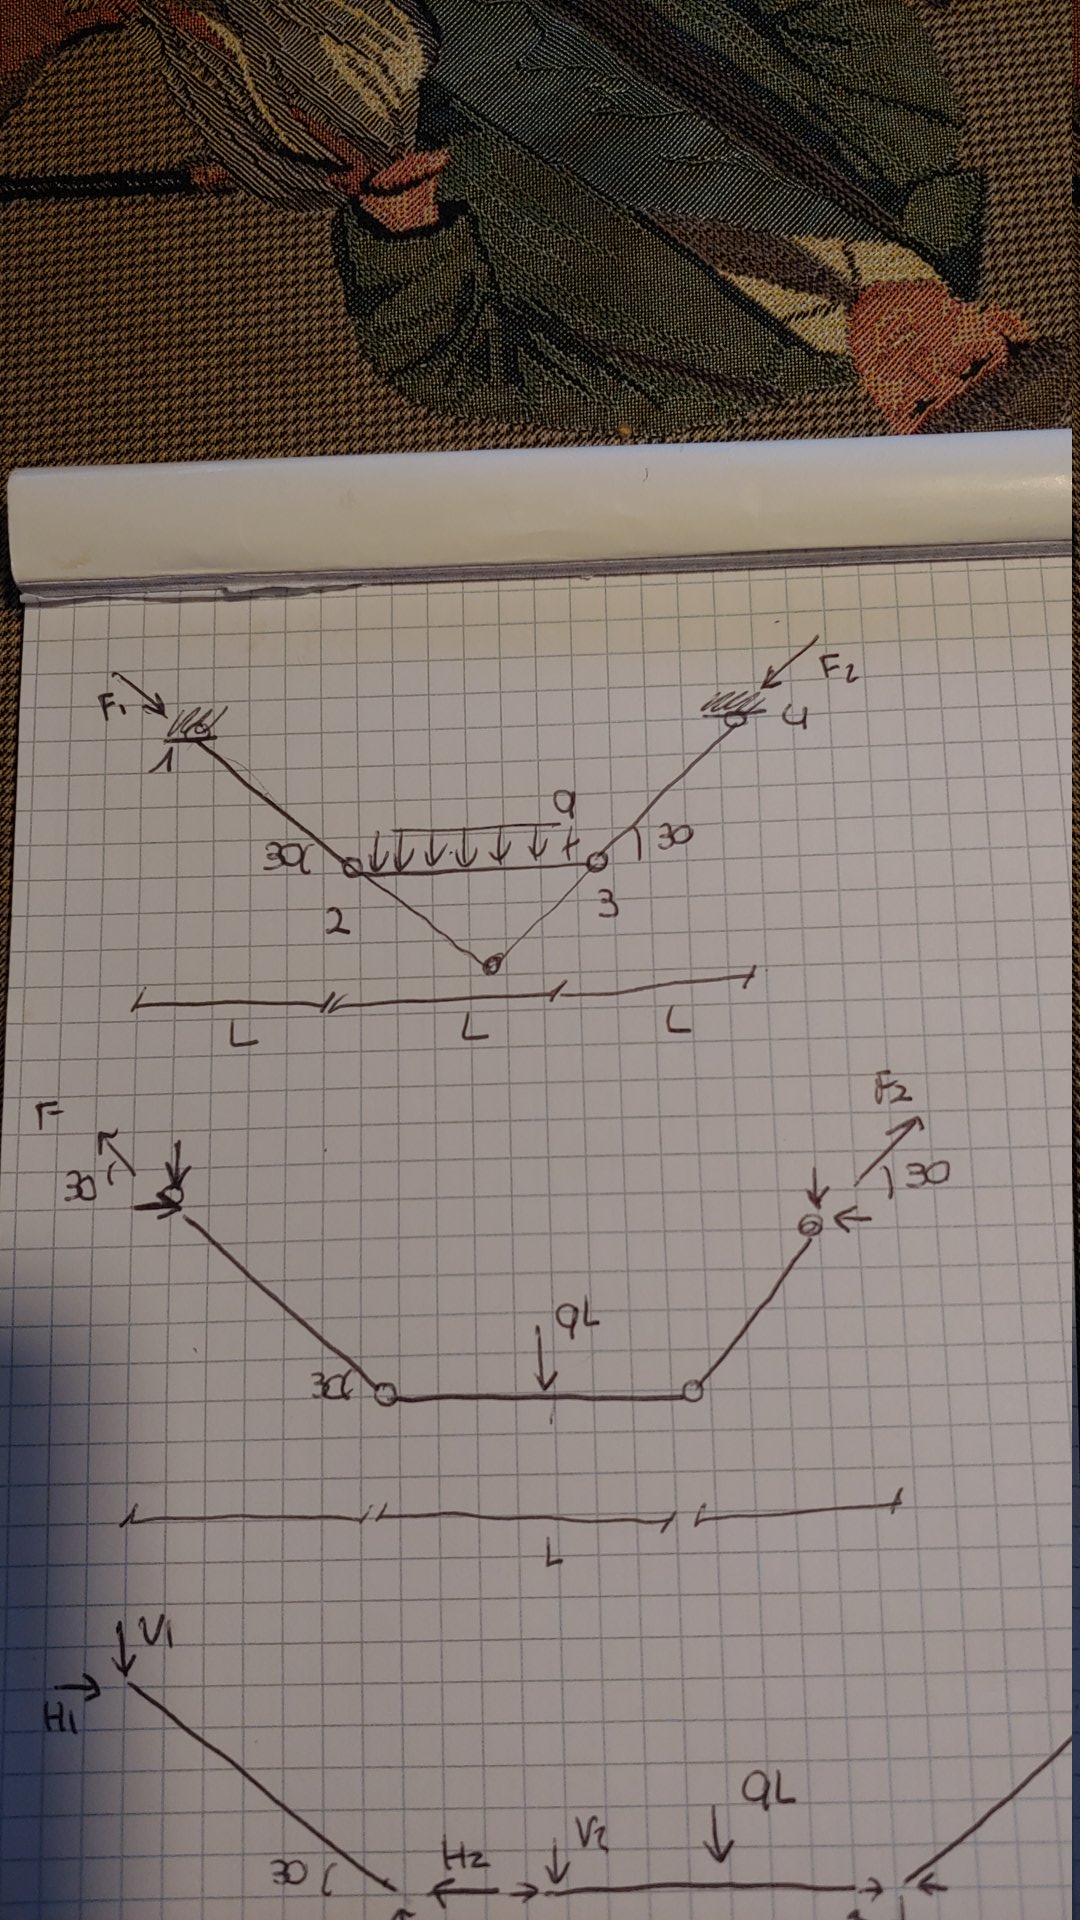 F1
F2
1
4
q
30
30
2
3
L
L
L
F
F2
30
30
qL
30
L
V1
H1
qL
V2
H2
30